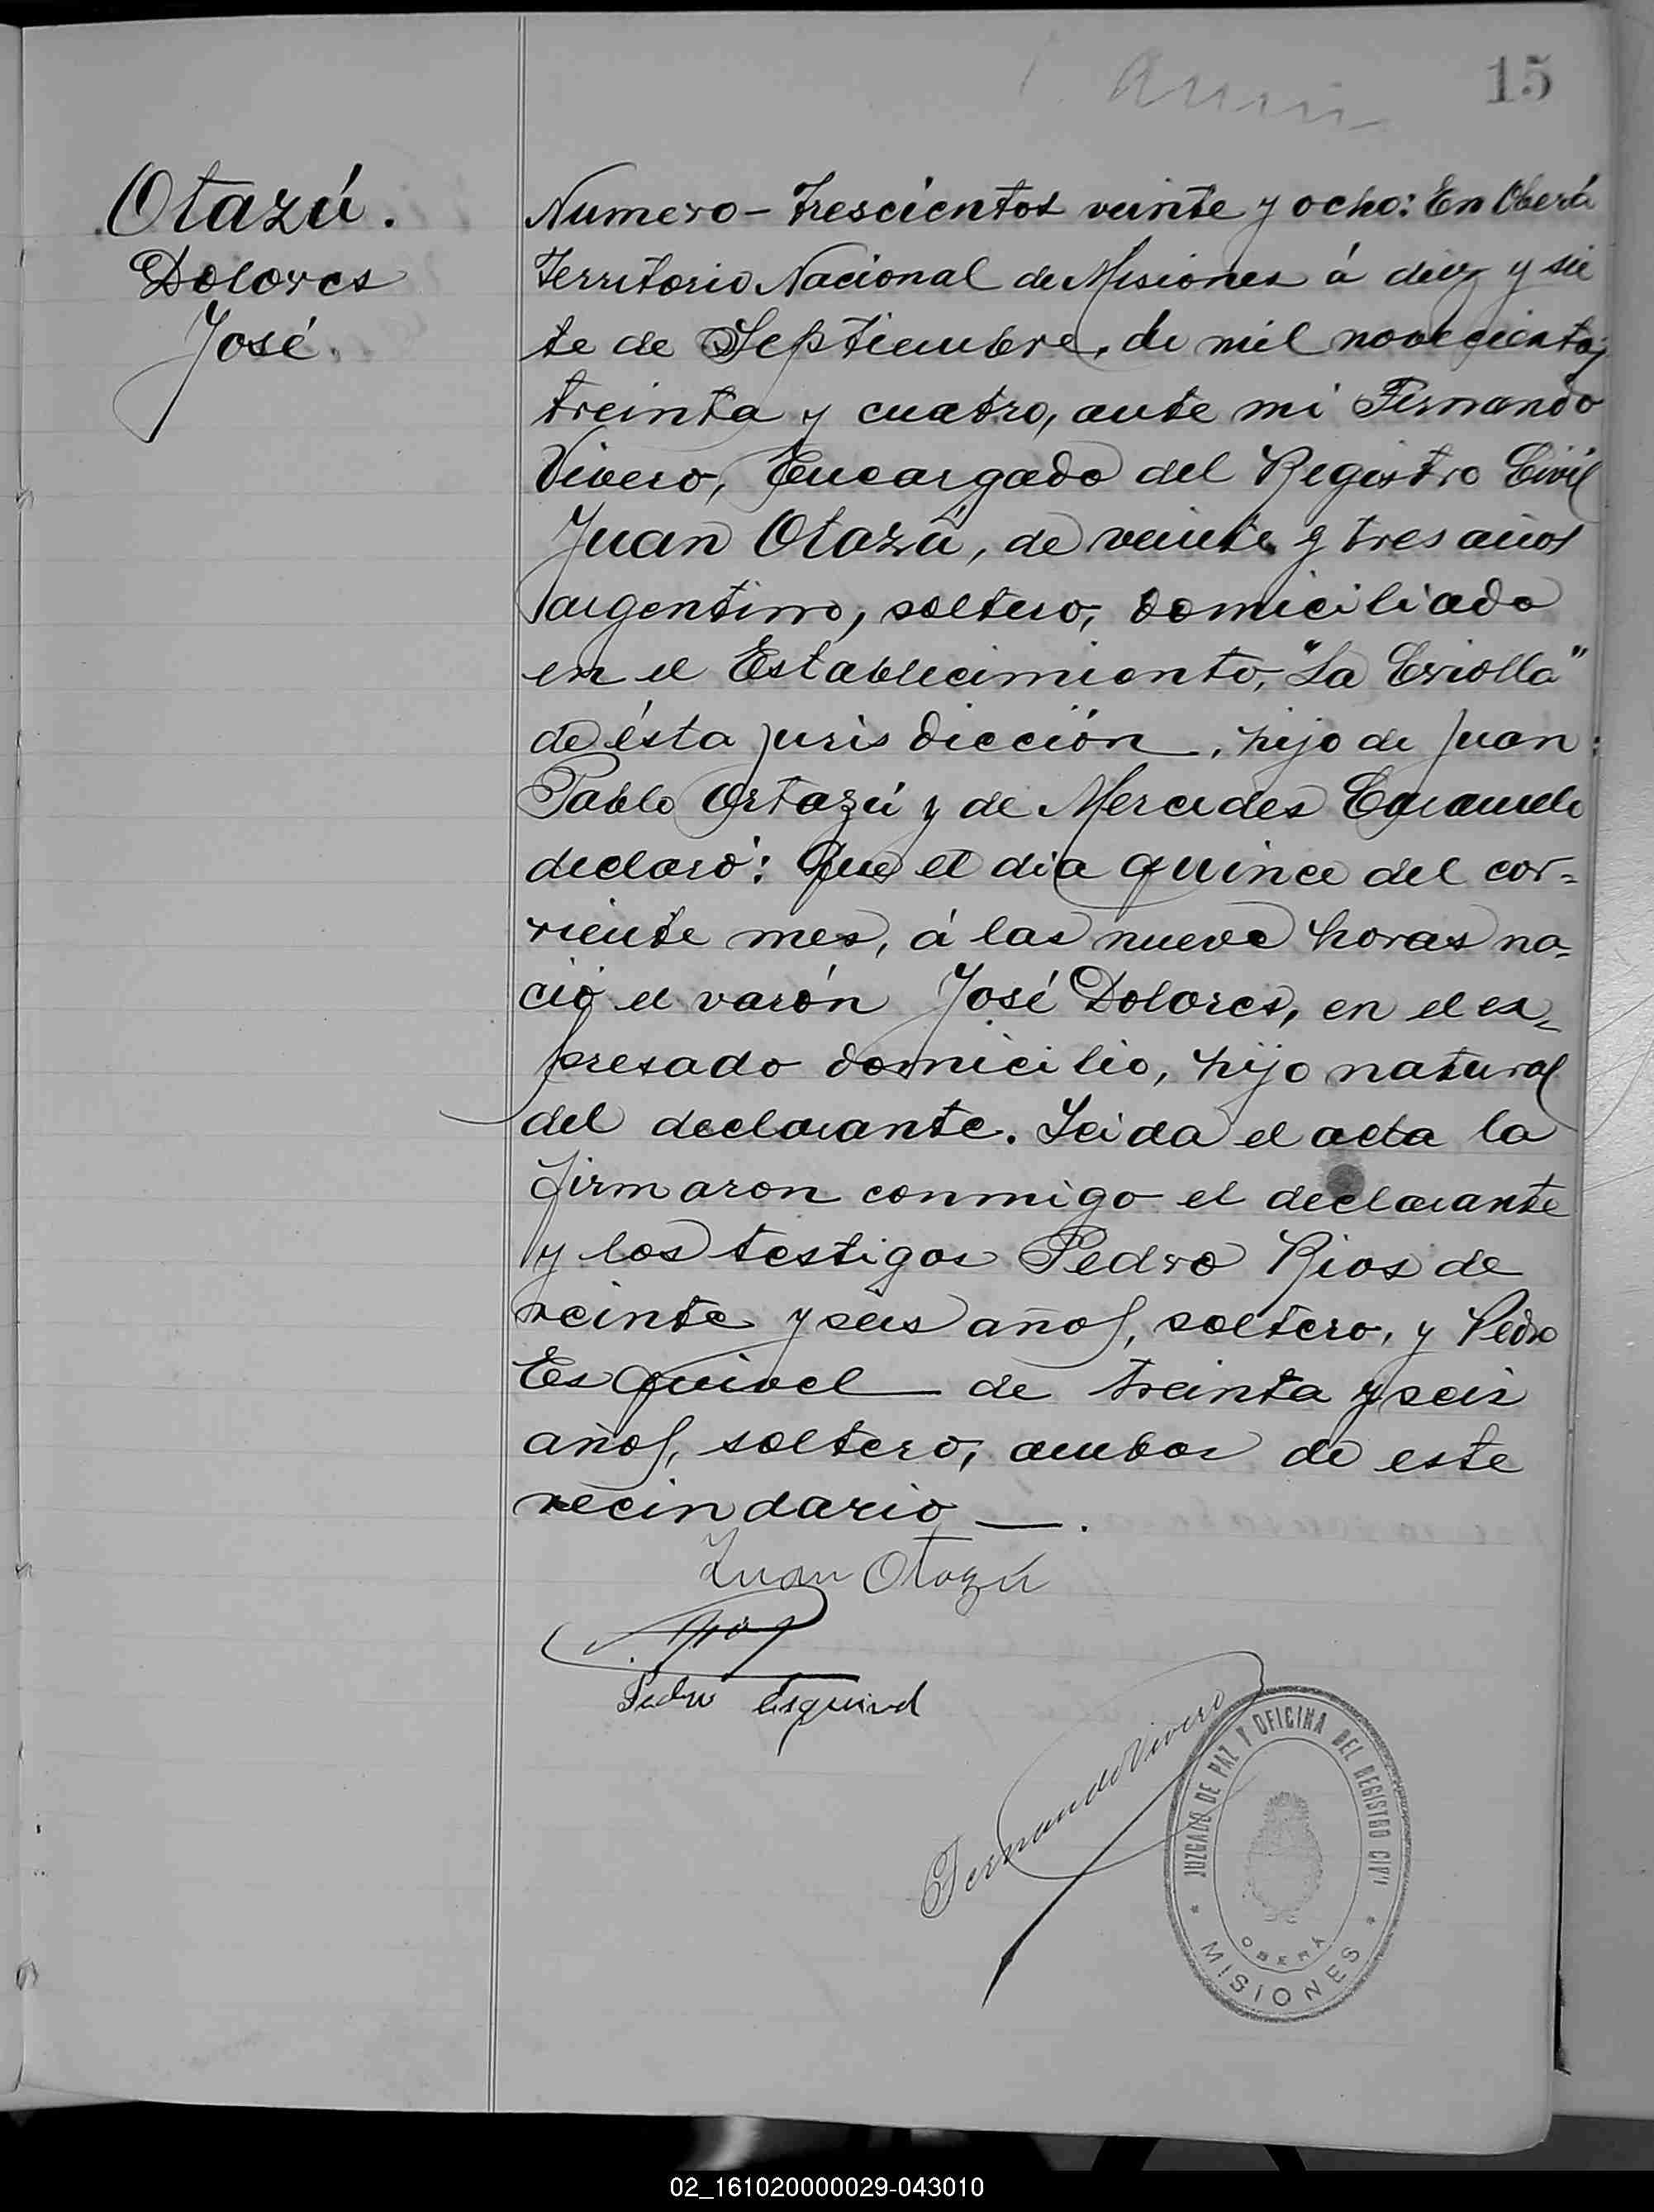 15
Otazú.
Dolores
José.
Numero - Trescientos veinte y ocho: En Oberá
Territorio Nacional de Misiones á diez y sie
te de Septiembre, de mil novecientos
treinta y cuatro, ante mi Fernando
Vivero, Encargado del Registro Civil
Juan Otazú, de veinte y tres años
argentino, soltero, domiciliado
en el Establecimiento, "La Criolla"
de ésta jurisdicción, hijo de Juan
Pablo Ortazú y de Mercedes
declaró: Que el dia quince del cor=
riente mes, á las nueve horas na=
ció el varón José Dolores, en el ex=
presado domicilio, hijo natural
del declarante. Leida el acta la
firmaron conmigo el declarante
y los testigos Pedro Rios de
veinte y seis años, soltero, y Pedro
Esquivel — de treinta y seis
años, soltero, ambos de este
vecindario —.
Juan Otazú
Pedro Esquivel
Fernando Vivero
JUZGADO DE PAZ Y OFICINA DEL REGISTRO CIVIL
OBERÁ
* MISIONES *
02_161020000029-043010